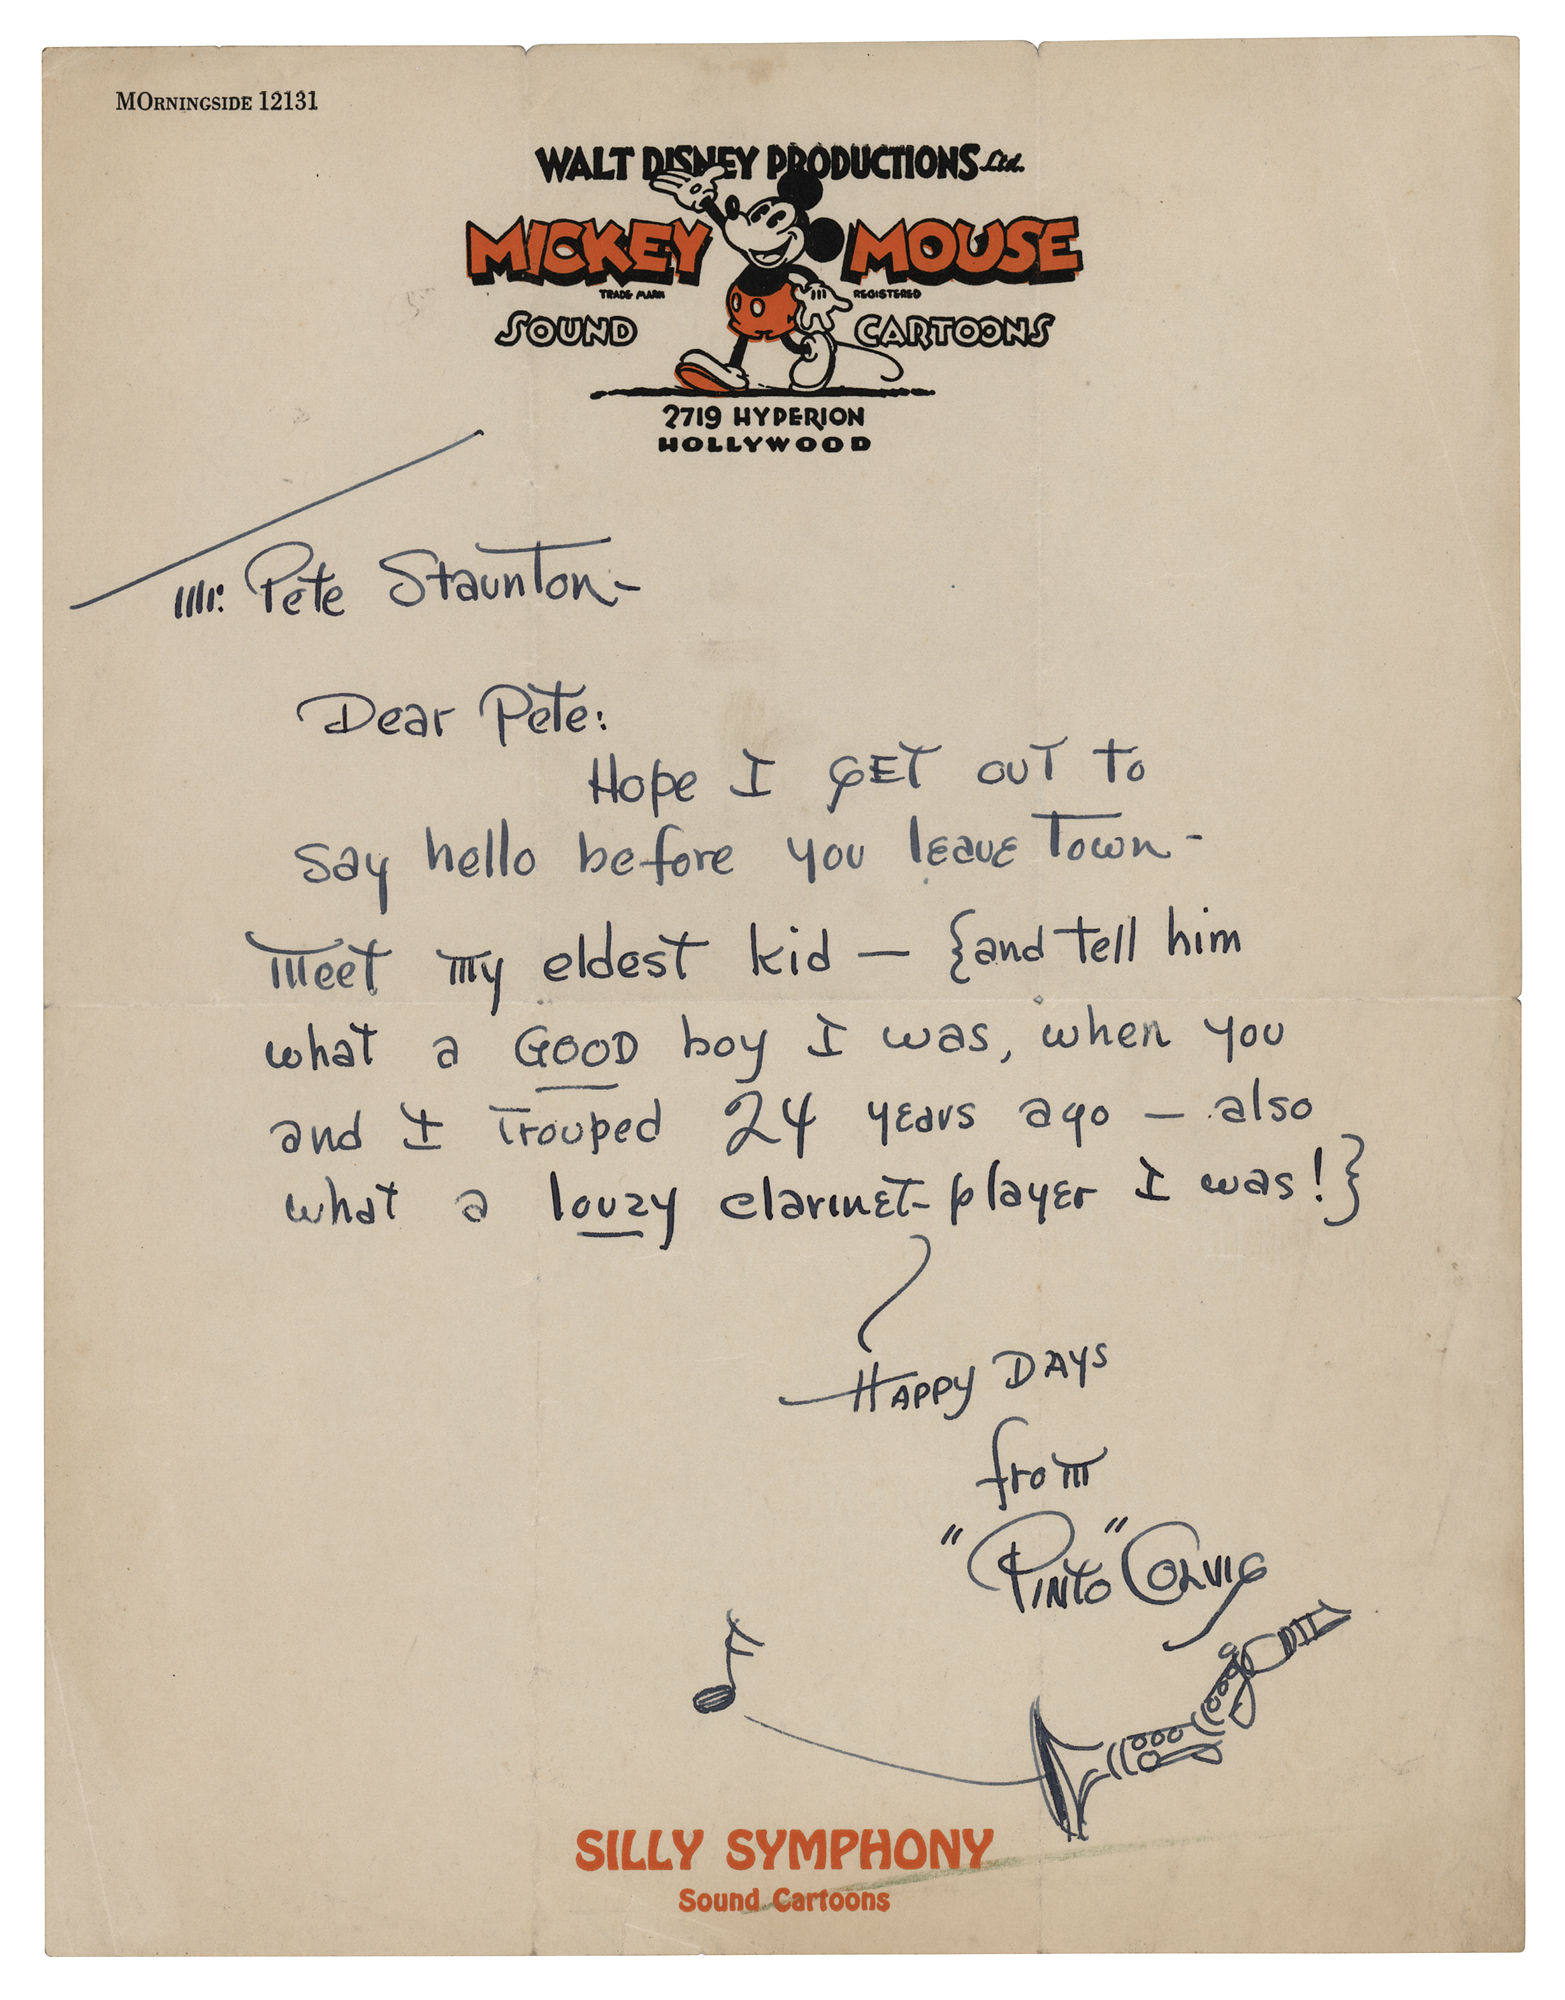 MORNINGSIDE 12131
WALT DISNEY PRODUCTIONS Ltd.
MICKEY MOUSE
TRADE MARK REGISTERED
SOUND CARTOONS
2719 HYPERION
HOLLYWOOD
Mr. Pete Staunton-
Dear Pete:
Hope I GET out to
say hello before you leave Town-
Meet my eldest kid — {and tell him
what a GOOD boy I was, when you
and I Trouped 24 years ago — also
what a louzy clarinet-player I was!}
HAPPY DAYS
from
"PINTO" COLVIG
SILLY SYMPHONY
Sound Cartoons